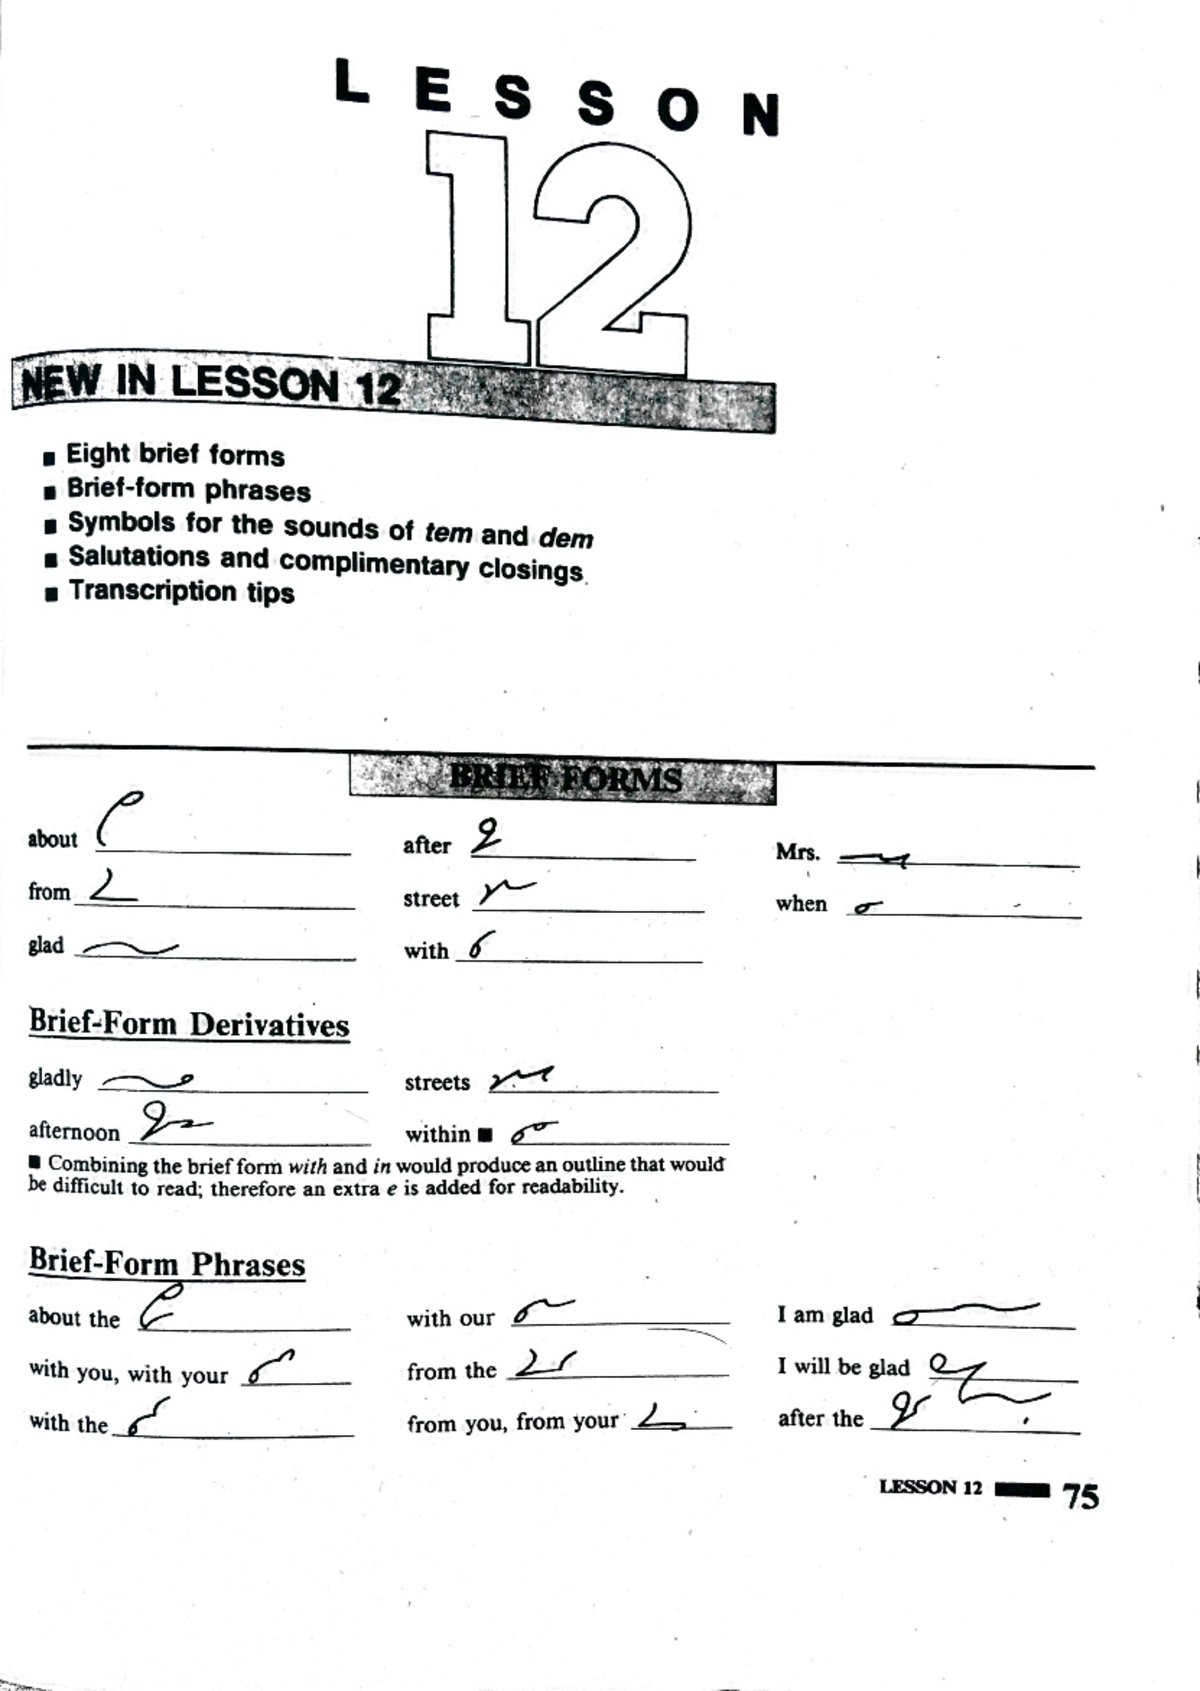 LESSON
12
NEW IN LESSON 12
■ Eight brief forms
■ Brief-form phrases
■ Symbols for the sounds of tem and dem
■ Salutations and complimentary closings
■ Transcription tips
BRIEF FORMS
about after Mrs.
from street when
glad with
Brief-Form Derivatives
gladly streets
afternoon within ■
■ Combining the brief form with and in would produce an outline that would
be difficult to read; therefore an extra e is added for readability.
Brief-Form Phrases
about the with our I am glad
with you, with your from the I will be glad
with the from you, from your after the
LESSON 12 75